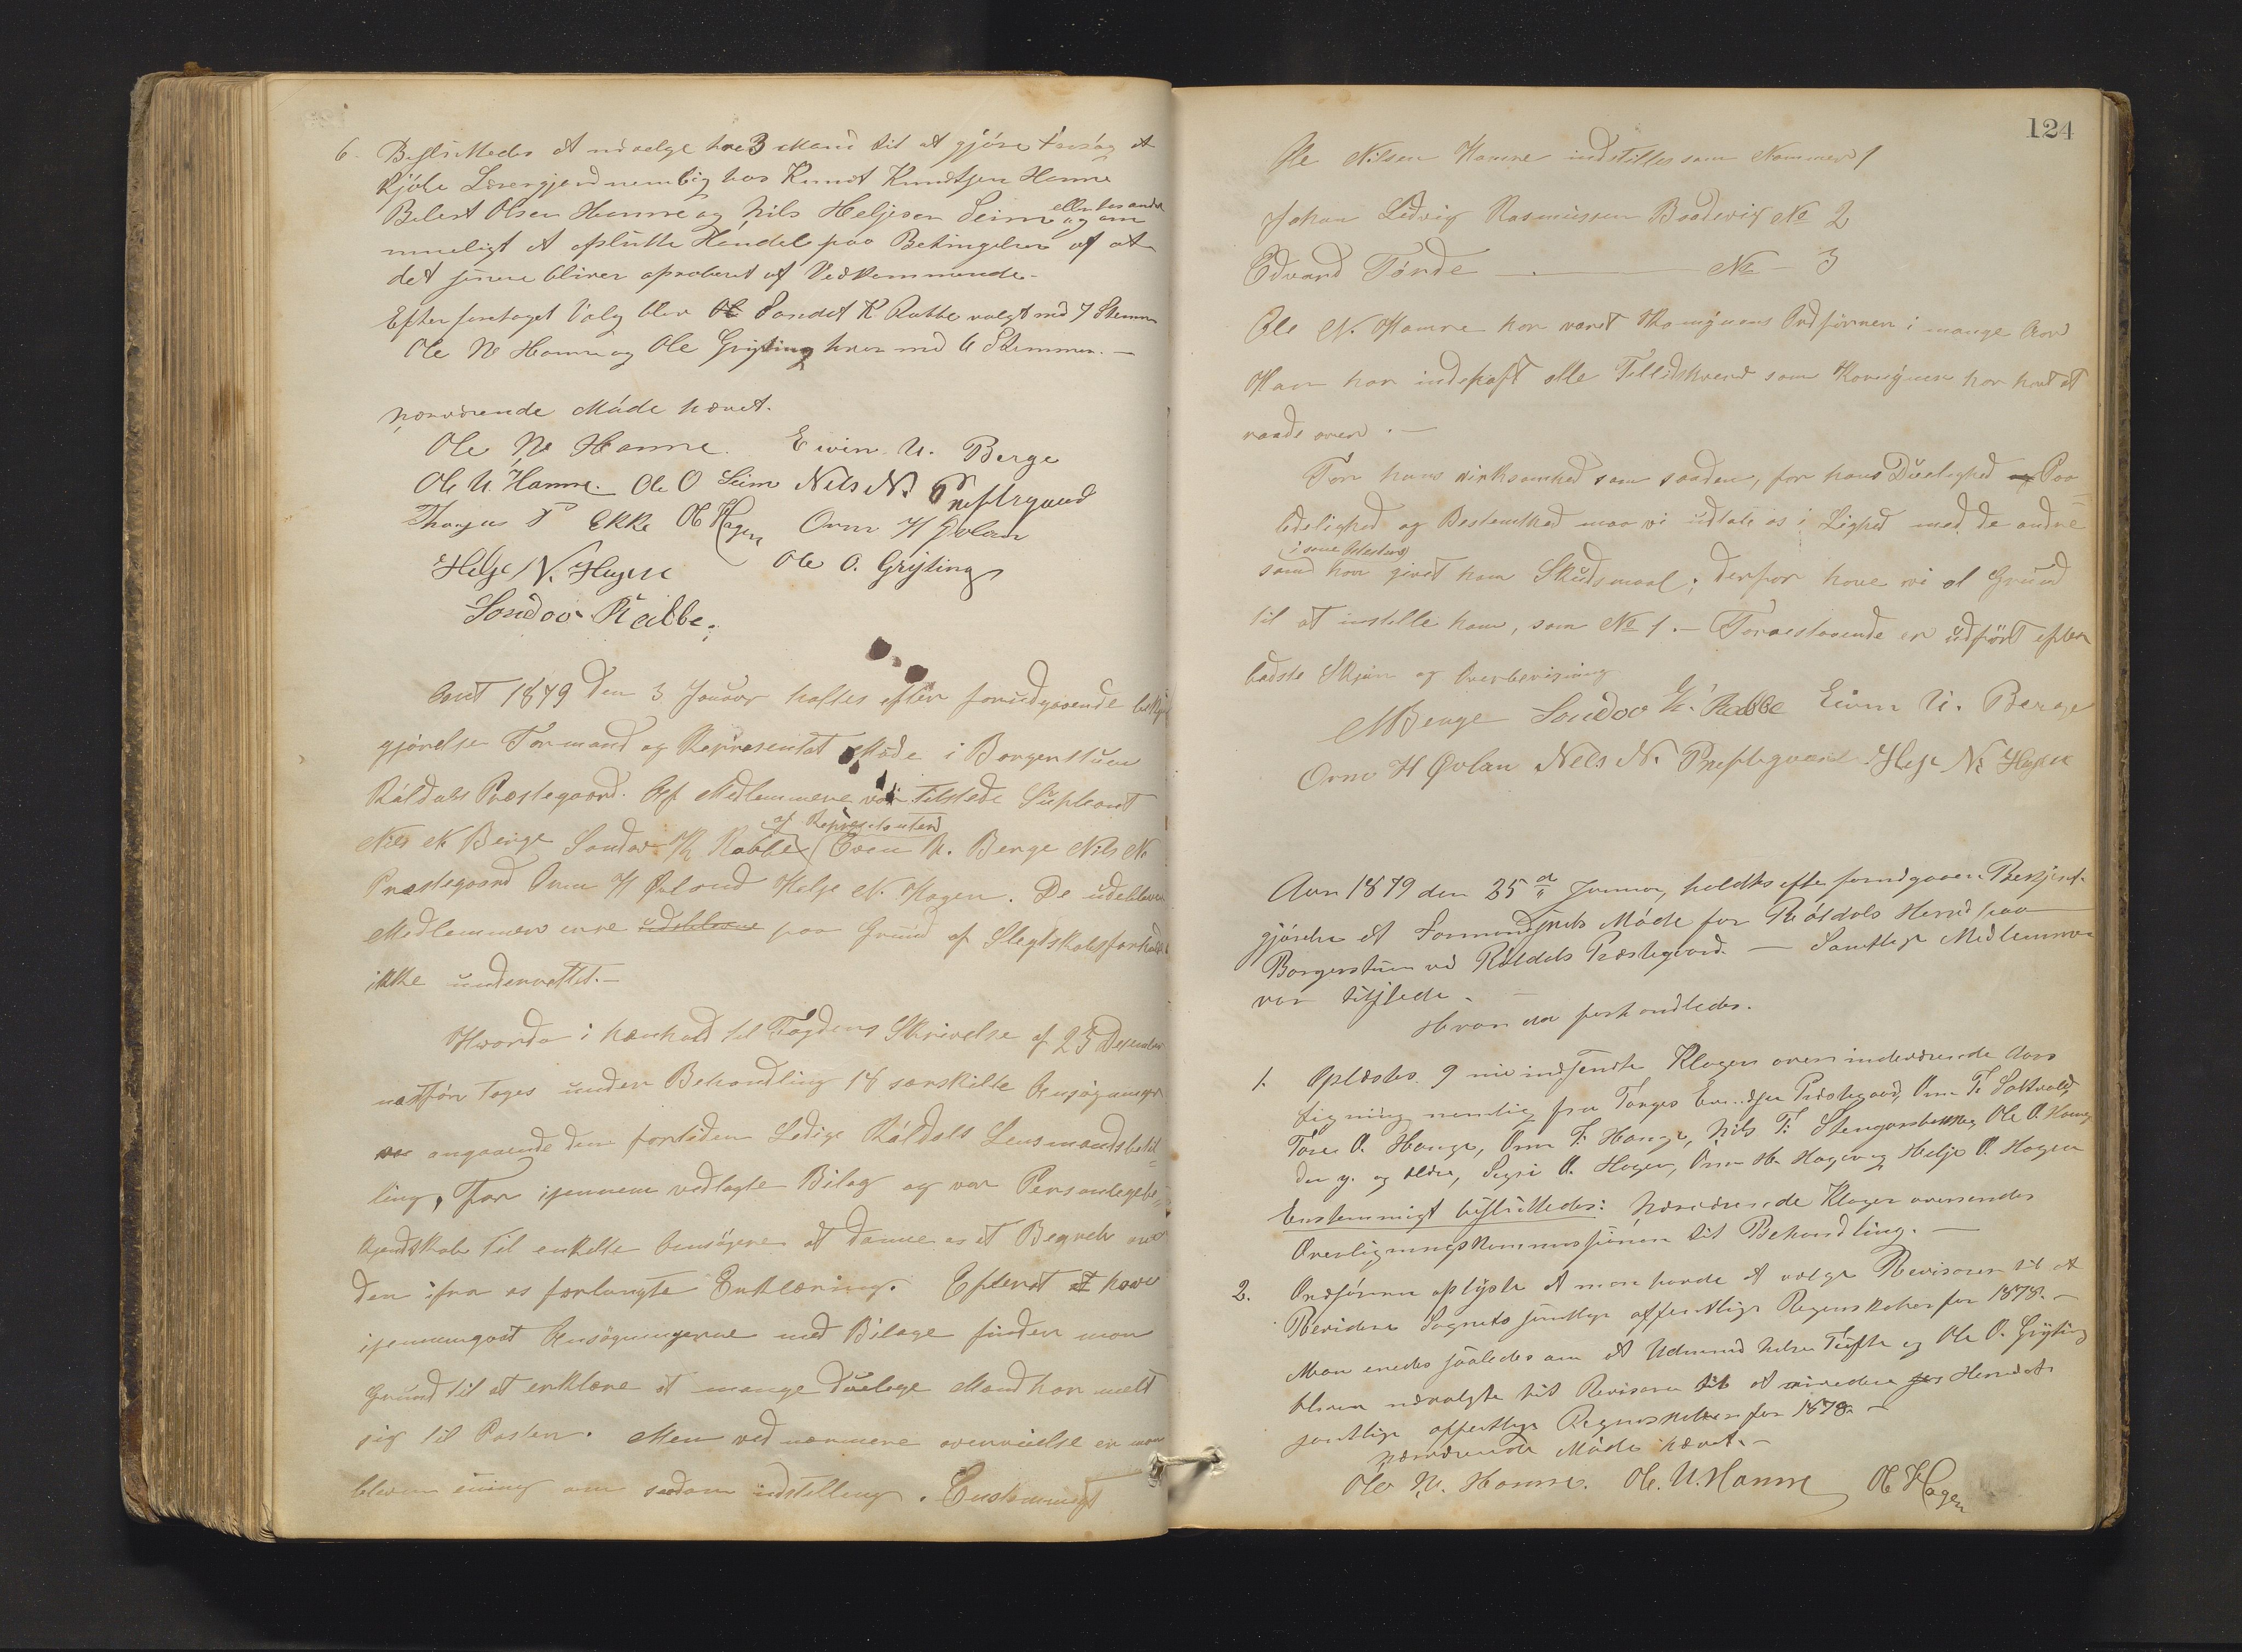 6. Besluttedes at udvælge tre 3 Mænd til at gjøre Forsøg at
kjøbe Lærergjerd nemlig hos Knudt Knudtsen Hamre
Belest Olsen Hamre og Nils Heljesen Seim og om
eller hos andre
mueligt at afslutte Handel paa Betingelser af at
det senere bliver aproberet af Vedkommende.
Efter foretaget Valg blev Ol Sondot K Rabbe valgt med 7 Stemmer
Ole N Hamre og Ole Gryting hver med 6 Stemmer. —
Nærværende Møde hævet.
Ole N. Hamre. Eivin U. Berge
Ole U. Hamre. Ole O Seim Nels N. Prestegaard
Thorjus P Ekke Ol Hagen Orm H Øvland
Helje N. Hagen Ole O. Gryting
Sondov Rabbe.
Aaret 1879 den 3 Januar holdtes efter forudgaaende bekjendt
gjørelse Formand og Repræsentat Møde i Borgerstuen
Røldals Præstegaard. Af Medlemmene var tilstede Supleant
Niels N Berge Sondov K Rabbe Even U. Berge Nils N
af Representanter
Præstegaard Orm H Øvland Helje N. Hagen. De udeblevne
Medlemmer vare udeblevne paa Grund af Slegtskabsforhold
ikke underrettet. —
Hvorda i henhold til Fogdens Skrivelse af 25 Desember
næstfør toges under Behandling 18 særskilte Ansøgninger
angaaende den fortiden Ledige Røldals Lensmandsbestil-
ling, For igjennem vedlagte Bilag og vor Personlegebe-
kjendtskab til enkelte Ansøgere at danne os et Begreb over
den ifra os forlangte Erklæring. Efterat at have
igjennemgaat Ansøgningerne med Bilage finder man
Grund til at erklære at mange duelege Mænd har meldt
sig til Posten. Men ved nærmere overveielse er man
bleven einig om saadan indstelling. Enstemmigt
124
Ole Nilsen Hamre indstilles som Nommer 1
Johan Ledvig Rasmussen Baadevig No 2
Edvard Førde — No — 3
Ole N. Hamre har været Komunens Ordførrer i mange Aar
Han har indehaft alle Tillidshverv som Komunen har havt at
raade over. —
For hans virksomhed som saadan, for hans Duelighed og Paa-
lidelighed og Bestemthed maa vi udtale os i Lighed med de andre
i sine Atester
som har givet ham Skudsmaal; derfor have vi al Grund
til at instelle ham, som No 1. — Foraestaaende er udført efter
bedste Skjøn og Overbevisning
N Berge Sondov K. Rabbe Eivin U. Berge
Orm H Øvland Nels N. Prestegaard Helje N. Hagen
Aar 1879 den 25de Januar, holdtes efter forudgaaen Bekjendt-
gjørelse et Formandskabs Møde for Røldals Herred paa
Borgerstuen ved Røldals Præstegaard. — Samtlige Medlemmer
var tilstede. —
Hvor da forhandledes.
1. Oplæstes 9 nie indsendte Klager over indeværende Aars
Ligning nemlig fra Torges Præstegaard, Orm T.
Tore O. Hauge, Orm T. Hauge, Nils T. Ole O. Hamre
den y. og eldre, Sigri O. Hagen, Orm H. Hagen og Helje O. Hagen
Enstemmigt besluttedes: Nærværende Klager oversendes
Overligningskommissionen til Behandling. —
2. Ordføreren oplyste at man havde at vælge Revisorer til at
Revidere Sognets samtlige offentlige Regnskaber for 1878. —
Man enedes saaledes om at Udmund Tufte og Ole O. Gryting
bleven udvalgte til Revisorer til at revidere Herredets
samtlige offentlige Regnskaber for 1878 —
Nærværende Møde hævet. —
Ole N. Hamre. Ole. U. Hamre Ol Hagen